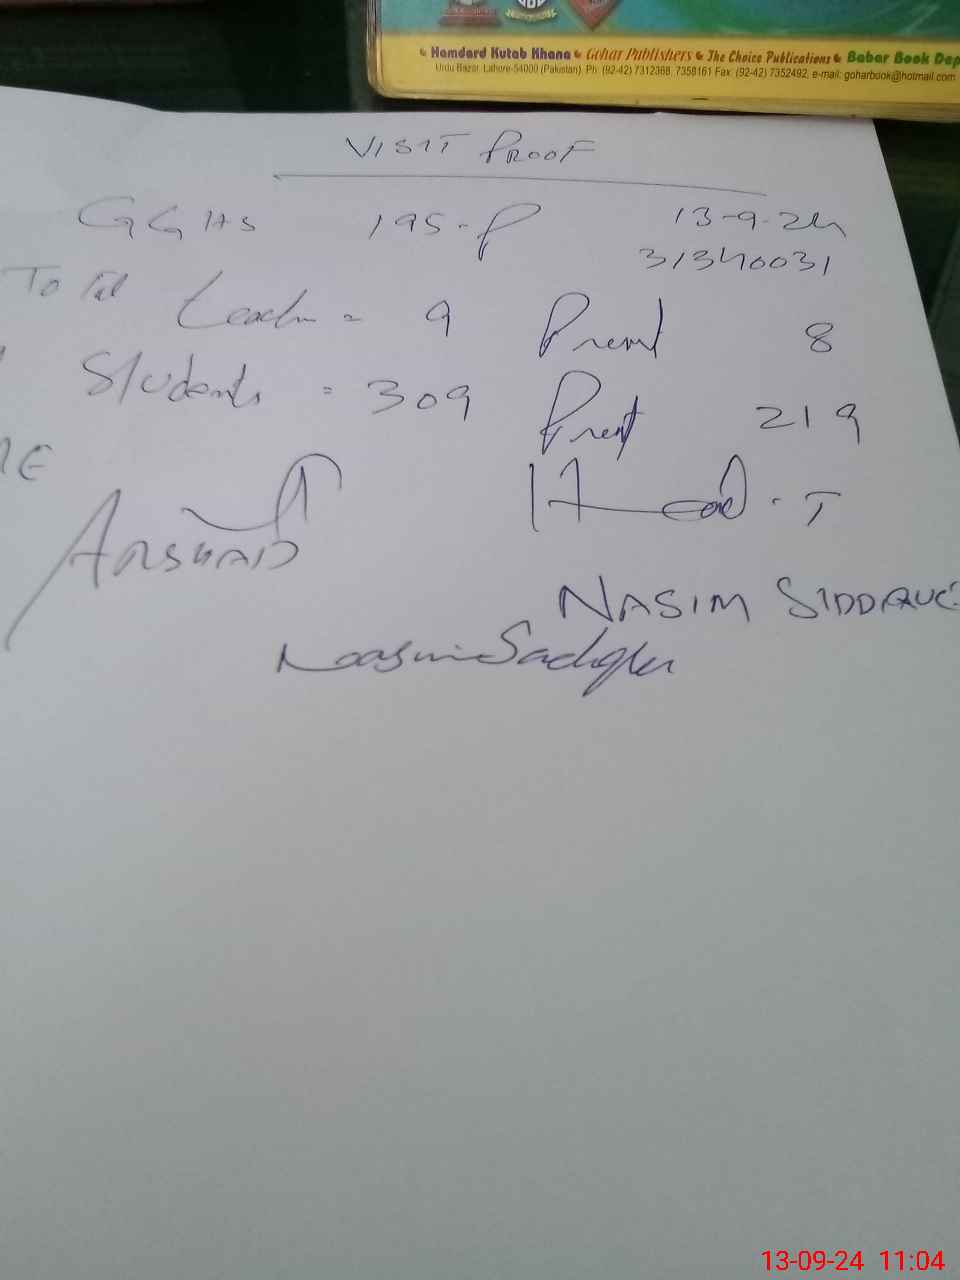 Hamdard Kutab Khana Gohar Publishers The Choice Publications Babar Book Dep
Urdu Bazar, Lahore-54000 (Pakistan). Ph: (92-42) 7312368, 7358161 Fax: (92-42) 7352492, e-mail: goharbook@hotmail.com
VISIT PROOF
GGHS 195-P 13-9-24
31340031
Total Teacher = 9 Present 8
Students = 309 Present 219
Head.T
ARSHAD
NASIM SIDDIQUE
13-09-24 11:04